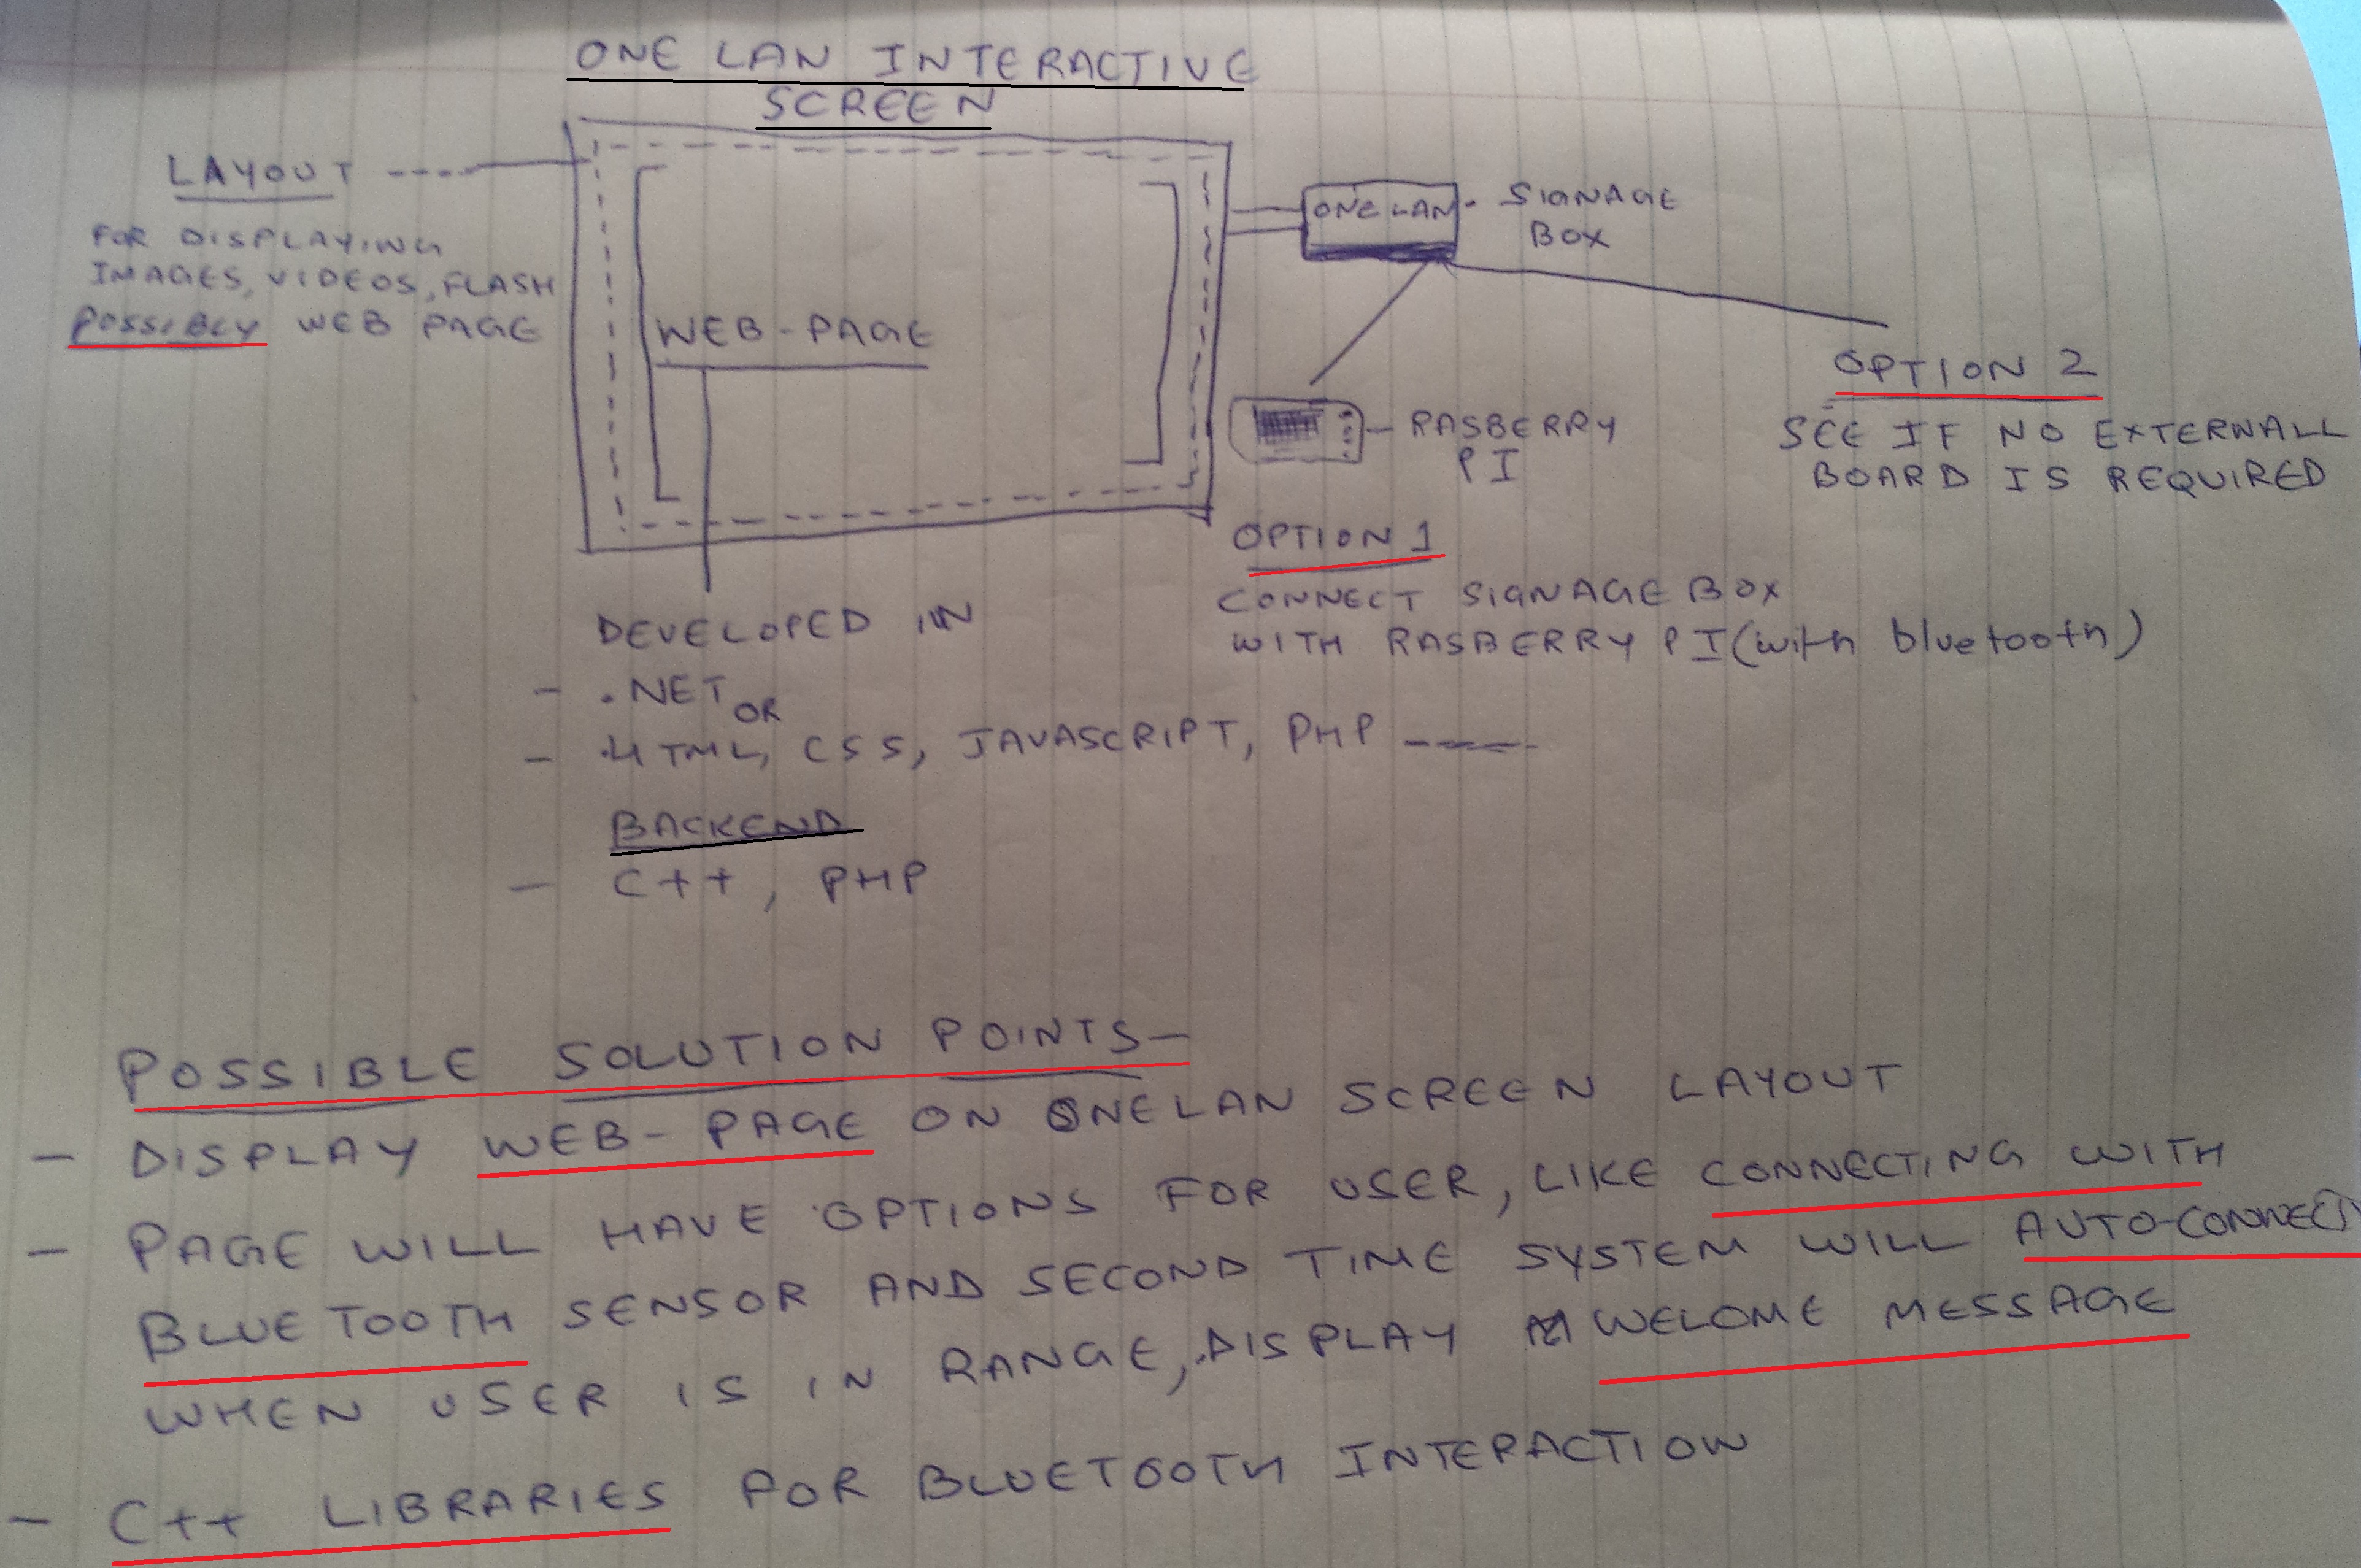 ONE LAN INTERACTIVE
SCREEN
LAYOUT
FOR DISPLAYING
IMAGES, VIDEOS, FLASH
POSSIBLY WEB PAGE
WEB-PAGE
ONELAN
SIGNAGE
BOX
RASBERRY
PI
OPTION 2
SEE IF NO EXTERNALL
BOARD IS REQUIRED
OPTION 1
CONNECT SIGNAGE BOX
WITH RASBERRY PI (with bluetooth)
DEVELOPED IN
- .NET OR
- HTML, CSS, JAVASCRIPT, PHP ----
BACKEND
- C++, PHP
POSSIBLE SOLUTION POINTS-
- DISPLAY WEB-PAGE ON ONELAN SCREEN LAYOUT
- PAGE WILL HAVE OPTIONS FOR USER, LIKE CONNECTING WITH
BLUETOOTH SENSOR AND SECOND TIME SYSTEM WILL AUTO-CONNECT
WHEN USER IS IN RANGE, DISPLAY WELOME MESSAGE
- C++ LIBRARIES FOR BLUETOOTH INTERACTION